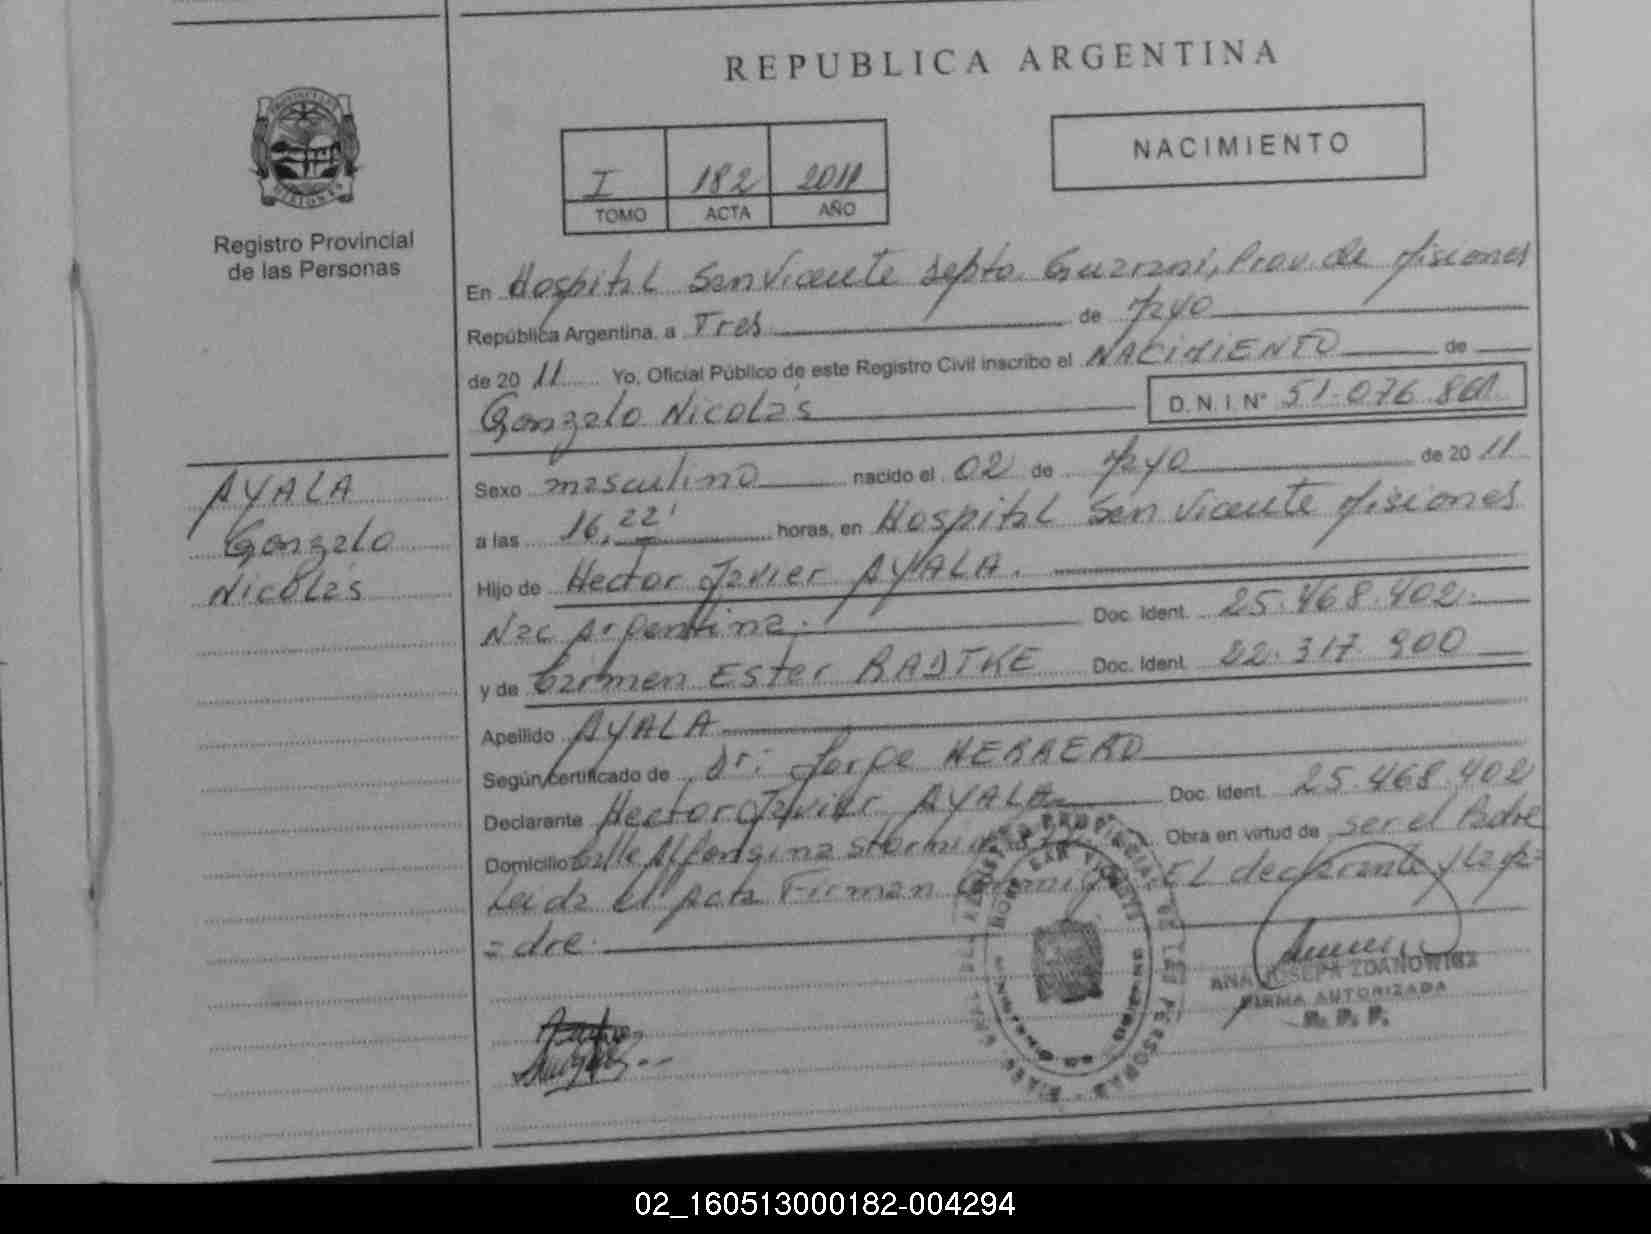 REPUBLICA ARGENTINA
NACIMIENTO
I 182 2011
TOMO ACTA AÑO
Registro Provincial
de las Personas
En Hospital San Vicente Depto. Guarani, Prov. de Misiones
República Argentina, a Tres de Mayo
de 20 11 Yo, Oficial Público de este Registro Civil inscribo el NACIMIENTO de
Gonzalo Nicolás D. N. I. N° 51.076.861
AYALA
Gonzalo
Nicolás
Sexo masculino nacido el 02 de Mayo de 20 11
a las 16,22' horas, en Hospital San Vicente Misiones
Hijo de Hector Javier AYALA.
Nac Argentina. Doc. Ident. 25.468.402.
y de Carmen Ester RADTKE Doc. Ident. 22.317.900
Apellido AYALA
Según certificado de Dr: Jorge HERRERO
Declarante Hector Javier AYALA Doc. Ident. 25.468.402
Domicilio Calle Alfonsina Storni Obra en virtud de ser el Padre
Leida el Acta Firman Conmigo EL declarante y La Ma=
=dre.
ANA JOSEFA ZDANOWICZ
FIRMA AUTORIZADA
R. P. P.
02_160513000182-004294